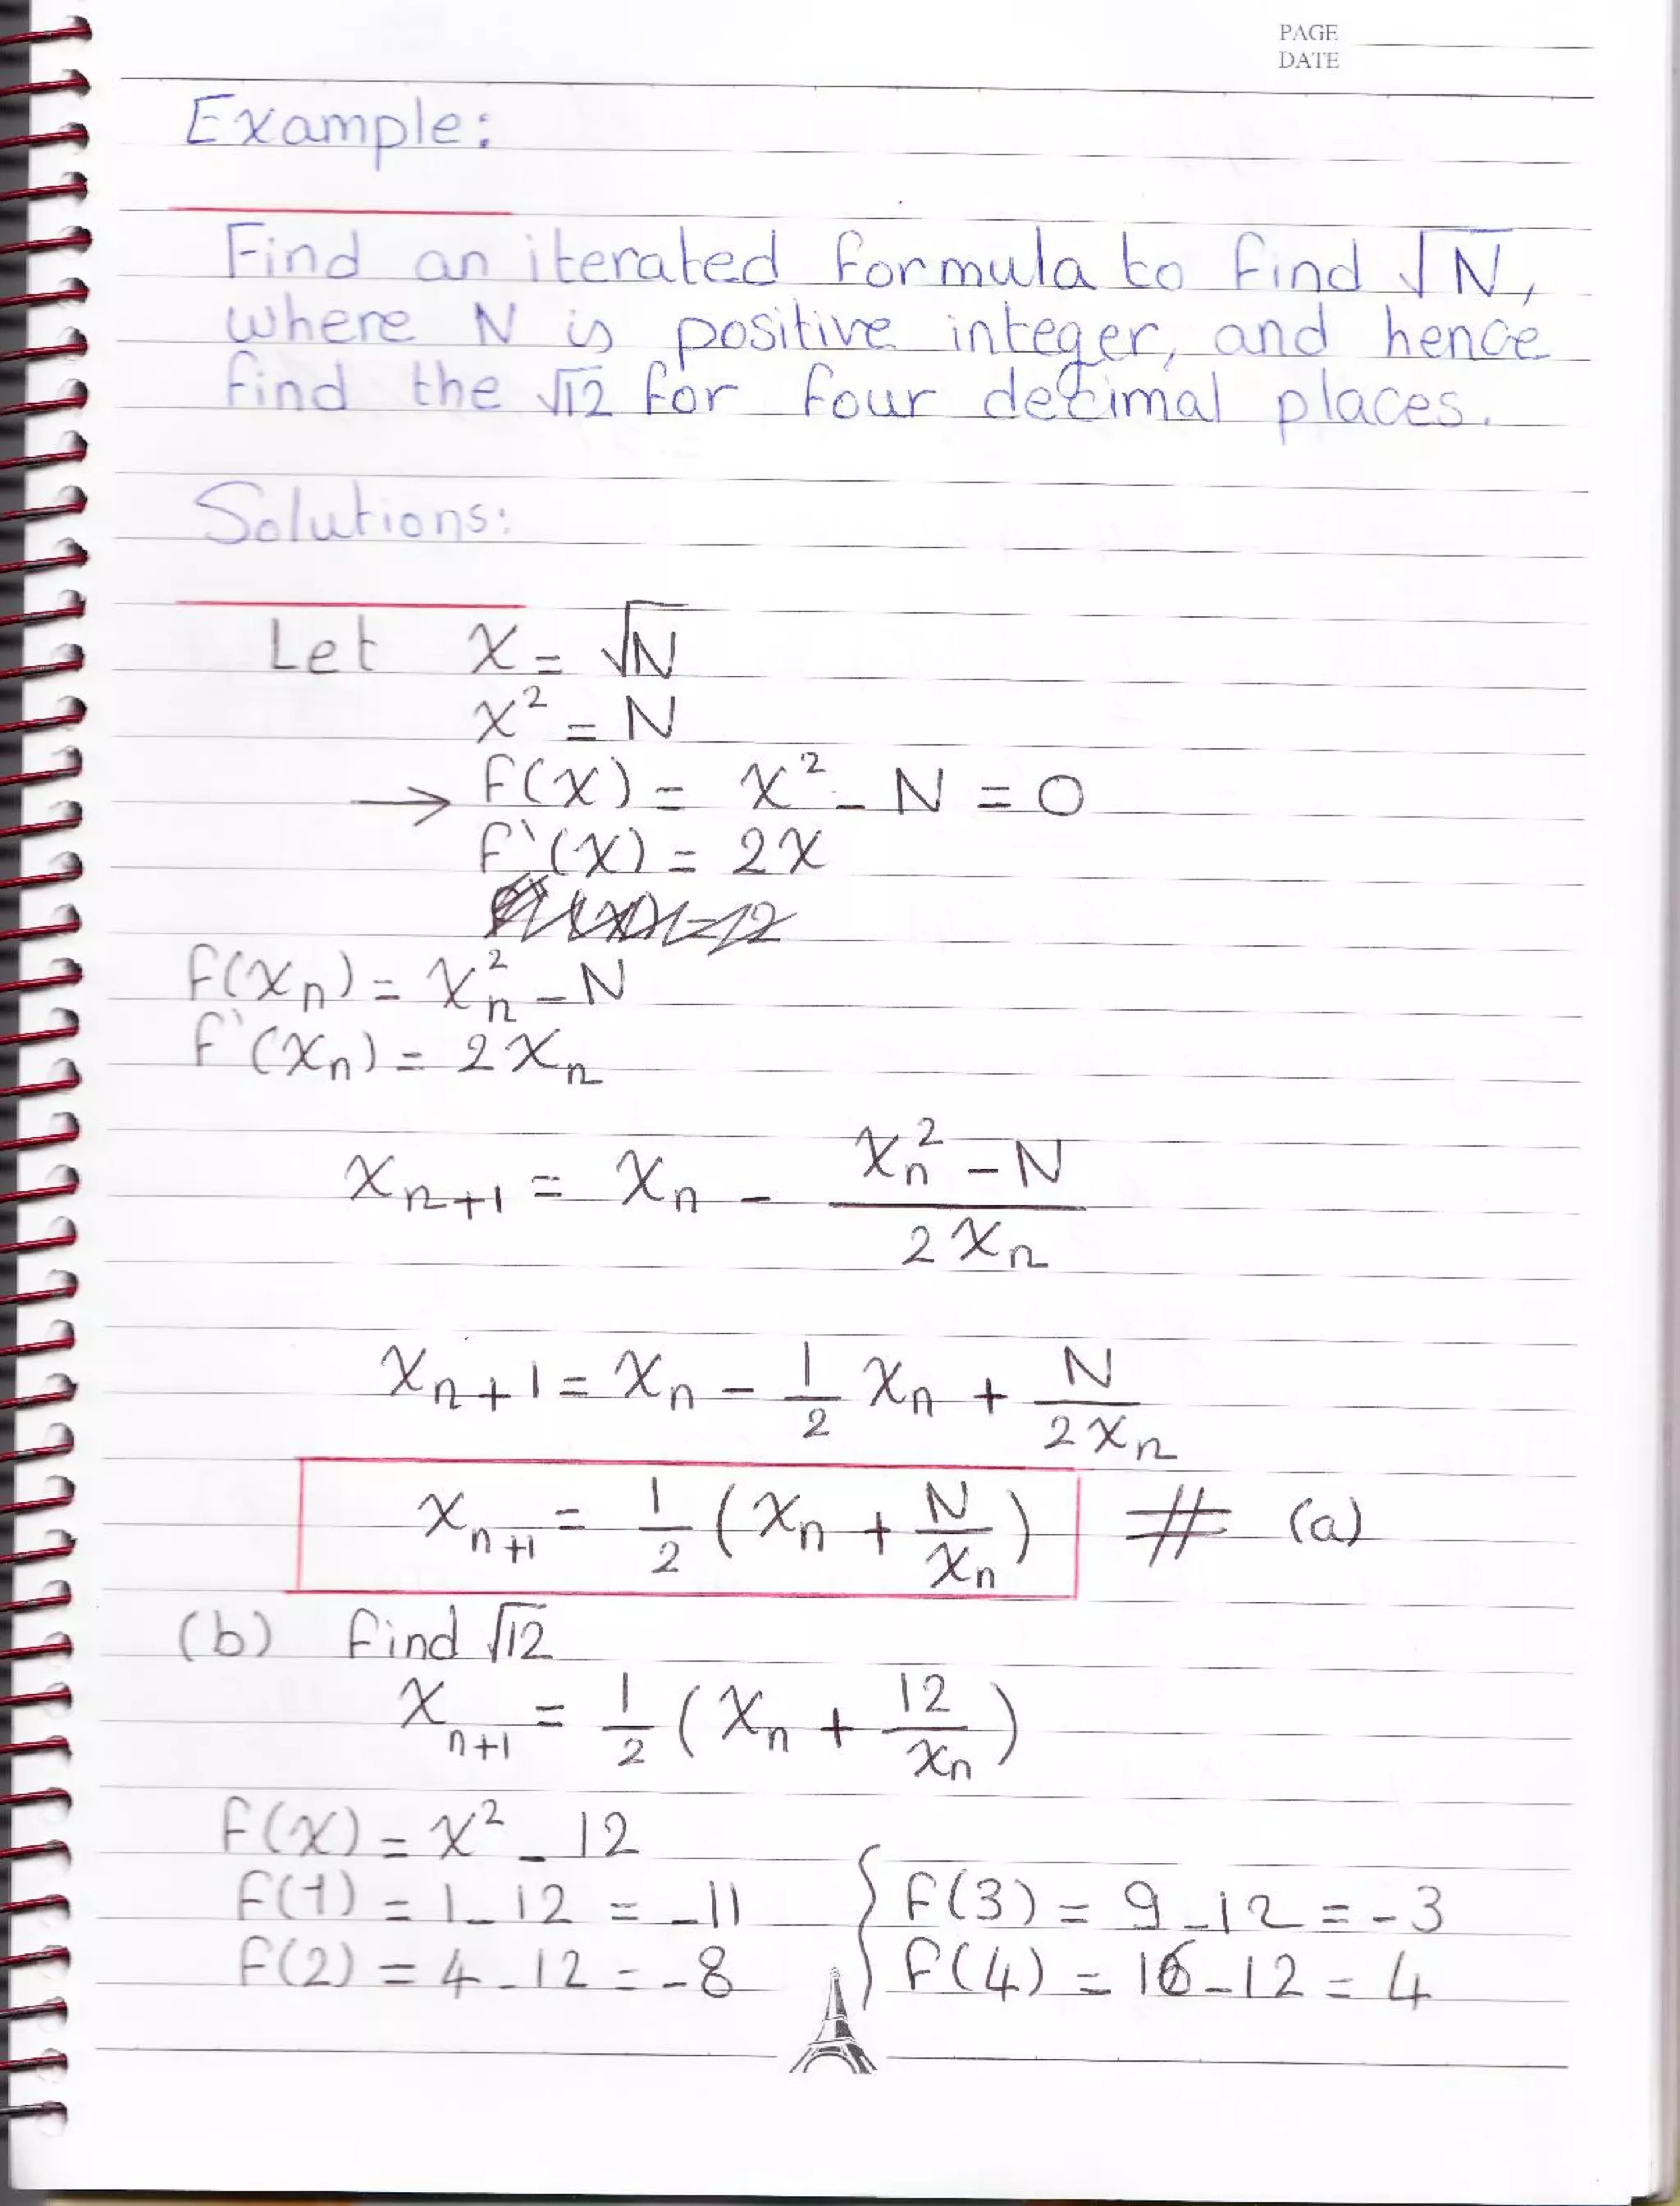 PAGE
DATE
Example:
Find an iterated formula to find √N,
where N is positive integer, and hence
find the √12 for four decimal places.
Solutions:
Let x = √N
x² = N
→ f(x) = x² - N = 0
f`(x) = 2x
f(xₙ) = xₙ² - N
f`(xₙ) = 2xₙ
xₙ₊₁ = xₙ - (xₙ² - N)/(2xₙ)
xₙ₊₁ = xₙ - 1/2 xₙ + N/(2xₙ)
xₙ₊₁ = 1/2 (xₙ + N/xₙ) # (a)
(b) find √12
xₙ₊₁ = 1/2 (xₙ + 12/xₙ)
f(x) = x² - 12
f(1) = 1 - 12 = -11 { f(3) = 9 - 12 = -3
f(2) = 4 - 12 = -8 { f(4) = 16 - 12 = 4